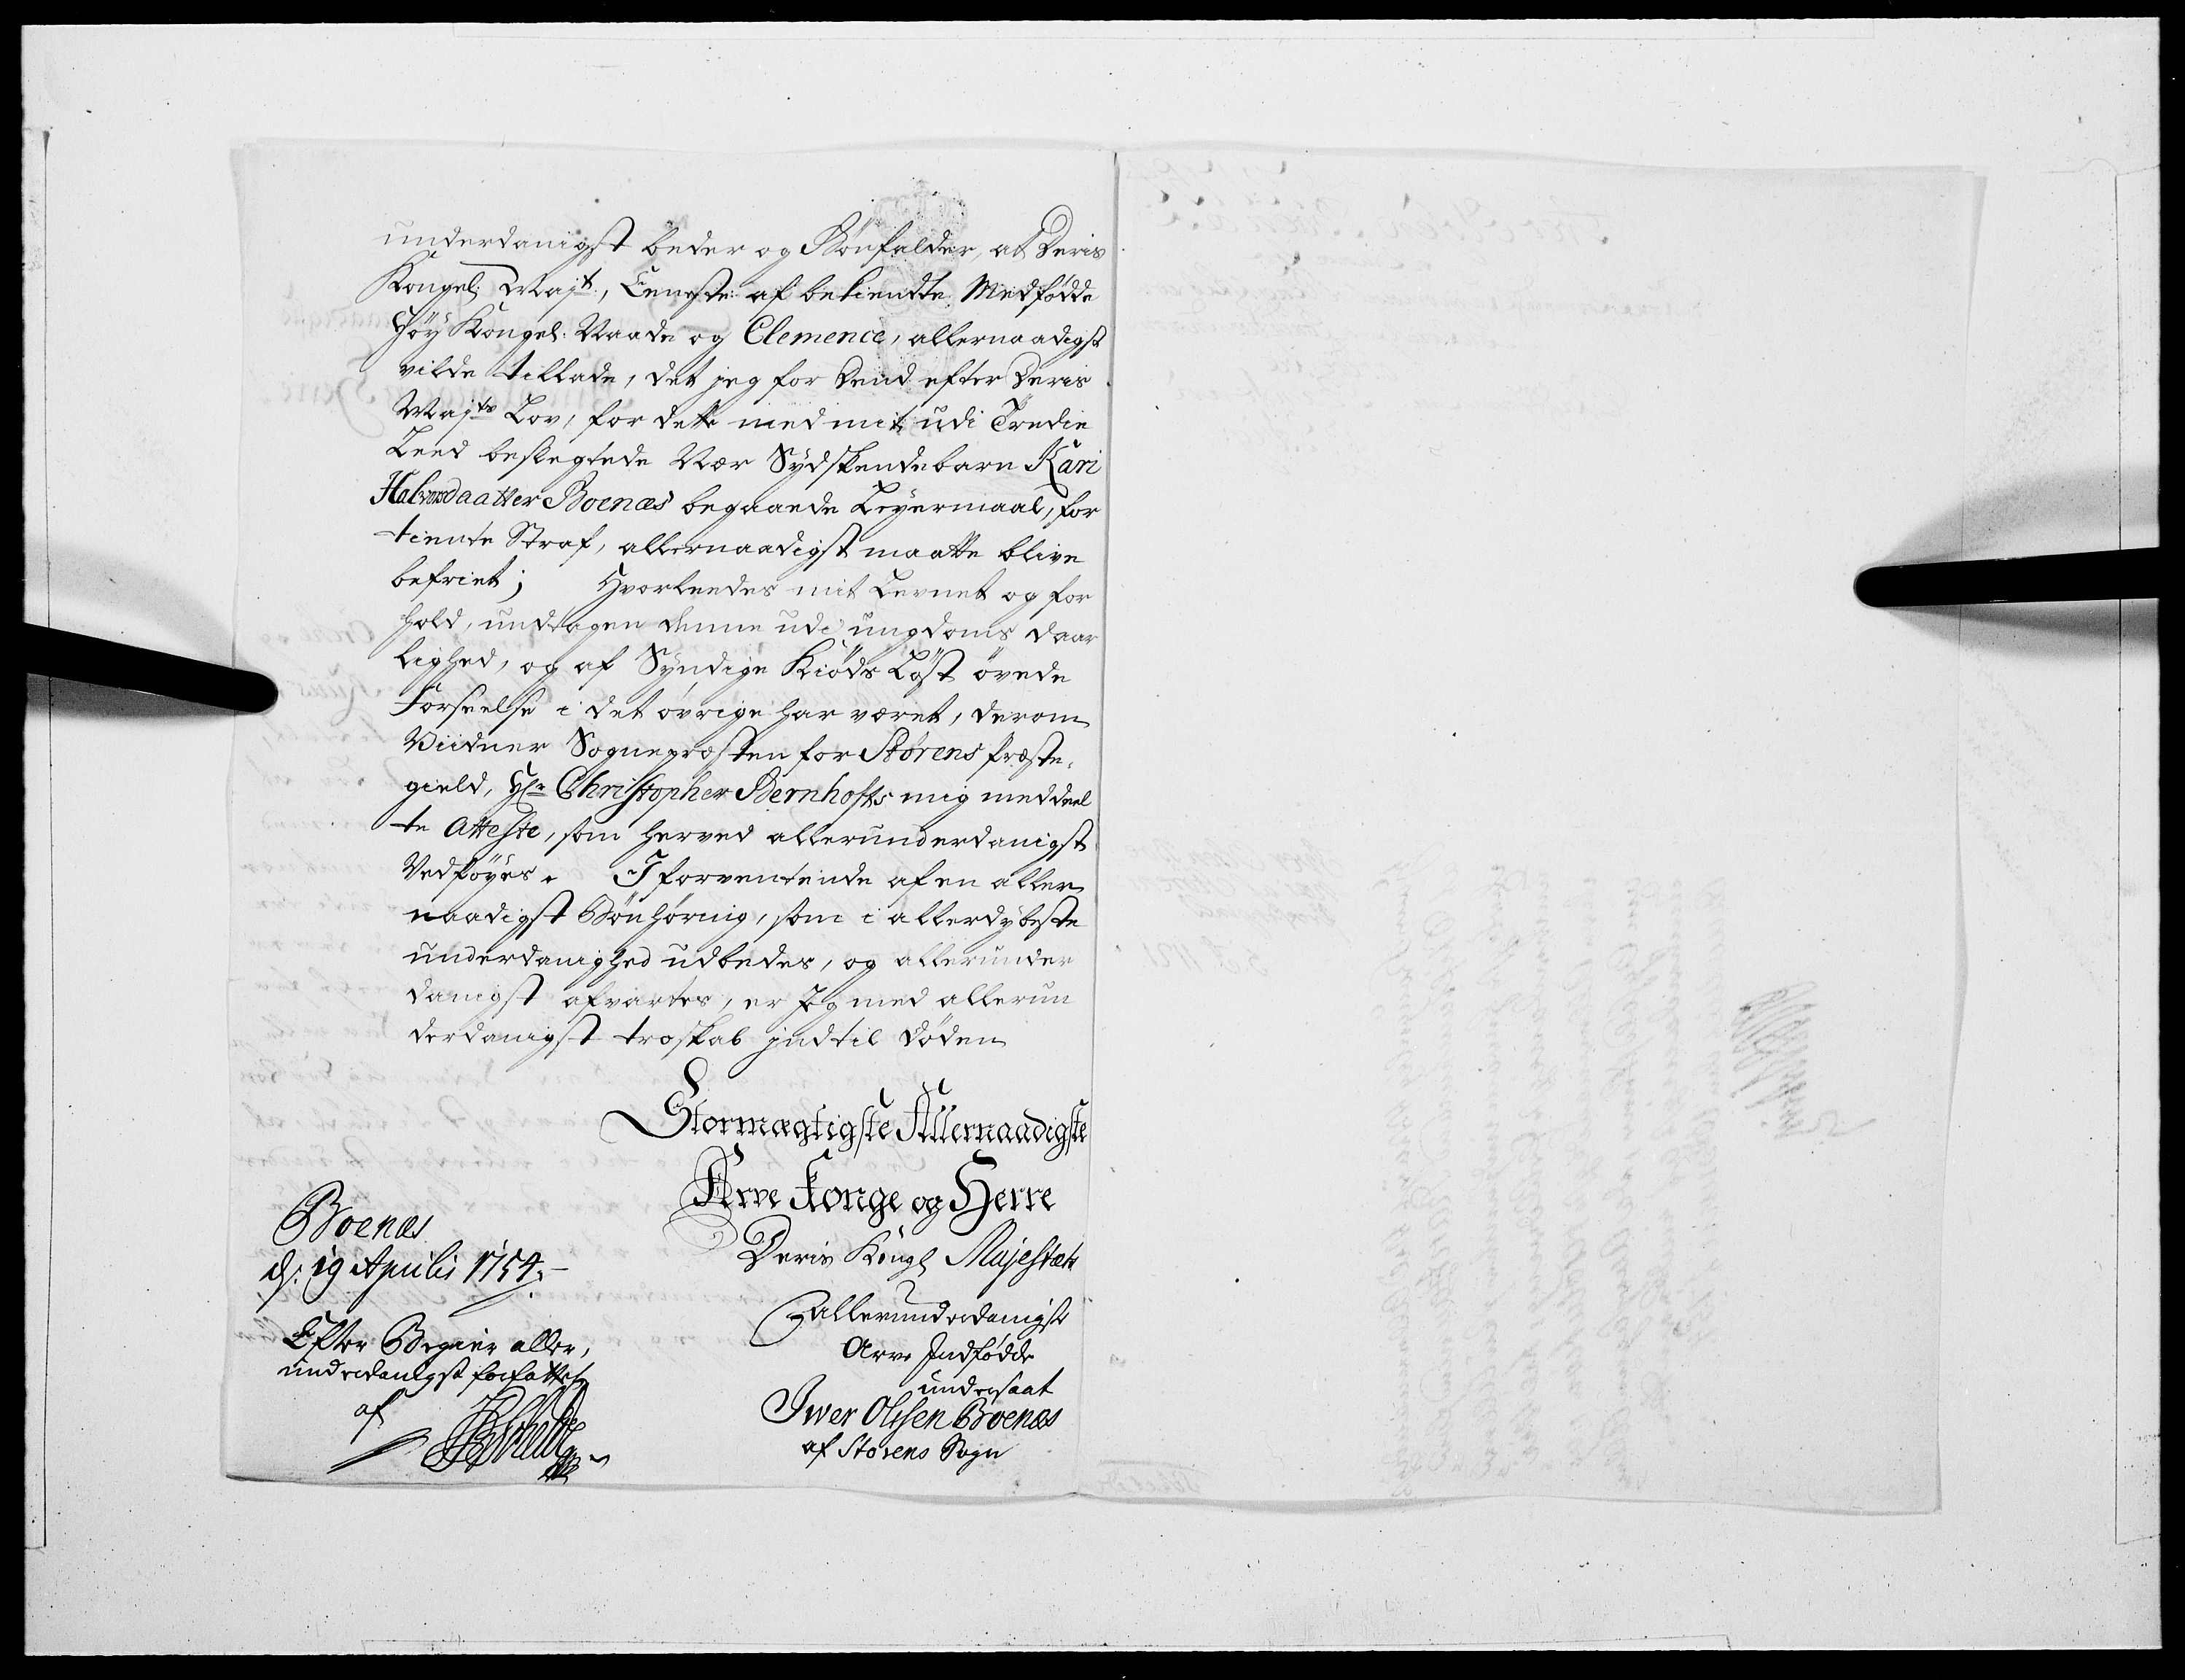 underdanigst beder og Bönfalder, at Deris
Kongel: Majt:, Eeneste af bekiendte Medfödde
Höy Kongel: Naade og Clemence, allernaadigst
vilde tillade, det jeg for Dend efter Deris
Majts Lov, for dette med mit udi Tredie
Leed beslegtede Nær Sydskendebarn Kari
Halvorsdaatter Boenæs begaaede Leyermaal, for
tiente Straf, allernaadigst maatte blive
befriet; Hvorleedes mit Levnet og for
hold, undtagen denne udi ungdoms daar
lighed, og af Syndige Kiöds Löst övede
Forseelse i det övrige har været, derom
Viidner Sognepræsten for Störens Præste-
gield, Hr Christopher Bernhofts mig meddeel
te Atteste, som herved allerunderdanigst
Vedföyes. I forventende af en aller
naadigst Bönhörnig, som i allerdybeste
underdanighed udbedes, og allerunder
danigst afvartes, er Jeg med allerun
derdanigst troskab indtil döden
Stormægtigste Allernaadigste
Arve Konge og Herre
Deris Kongl Majestæts
allerunderdanigst
Arve Indfödde
undersaat
Iwer Olssen Boenæs
af Störens Sogn
Boenæs
d: 19 Aprilis 1754.
Efter Begier aller,
underdanigst forfattet
af